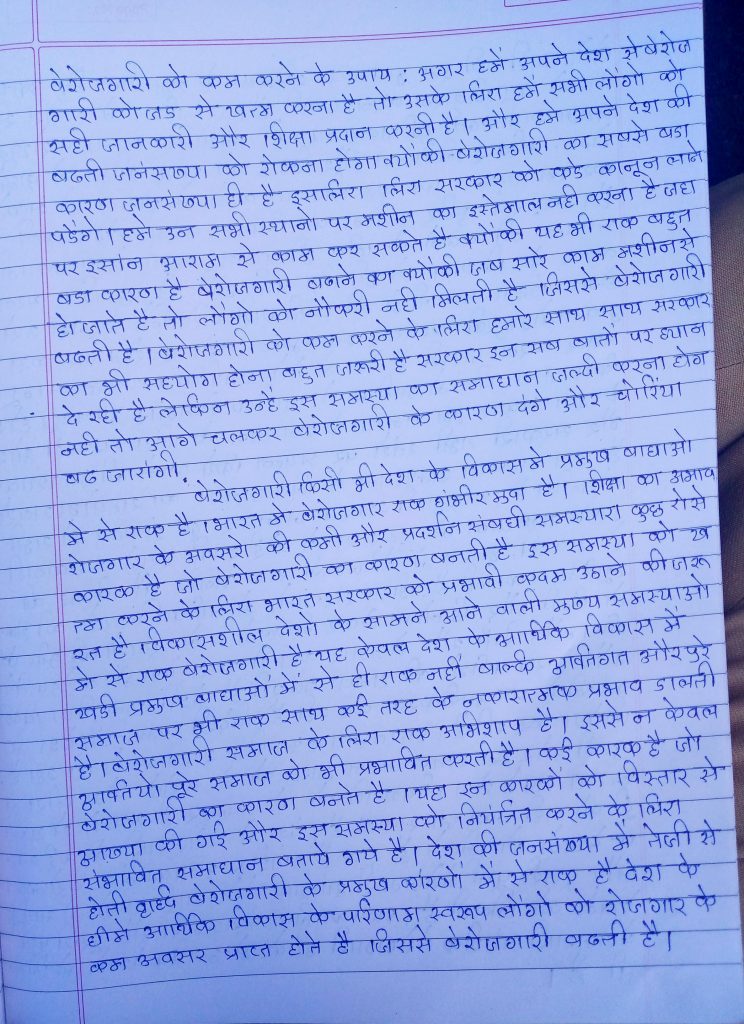 बेरोजगारी को कम करने के उपाय : अगर हमें अपने देश से बेरोज
गारी को जड से खत्म करना है तो उसके लिए हमें सभी लौगो को
सही जानकारी और शिक्षा प्रदान करनी है। और हमे अपने देश की
बढती जनसंख्या को रोकना होगा क्योंकी बेरोजगारी का सबसे बडा
कारण जनसंख्या ही है इसलिए लिए सरकार को कडे कानून लाने
पडेंगे। हमे उन सभी स्थानो पर मशीन का इस्तेमाल नही करना है जहा
पर इसांन आराम से काम कर सकते है क्योंकी यह भी एक बहुत
बडा कारण है बेरोजगारी बढाने का क्योंकी जब सारे काम मशीन से
हो जाते है तो लौगो को नौकरी नही मिलती है जिससे बेरोजगारी
बढती है। बेरोजगारी को कम करने के लिए हमारे साथ साथ सरकार
का भी सहयोग होना बहुत जरूरी है सरकार इन सब बातों पर ध्यान
दे रही है लेकिन उन्हे इस समस्या का समाधान जल्दी करना होग
नही तो आगे चलकर बेरोजगारी के कारण दंगे और चोरिंया
बढ जाएगी.
बेरोजगारी किसी भी देश के विकास मे प्रमुख बाधाओ
मे से एक है। भारत मे बेरोजगार एक गंभीर मुद्दा है। शिक्षा का अभाव
रोजगार के अवसरो की कमी और प्रदर्शन संबधी समस्याए कुछ ऐसे
कारक है जो बेरोजगारी का कारण बनती है इस समस्या को ख
त्म करने के लिए भारत सरकार को प्रभावी कदम उठाने की जरू
रत है। विकासशील देशो के सामने आने वाली मुख्य समस्याओ
मे से एक बेरोजगारी है यह केवल देश के आर्थिक विकास में
खडी प्रमुख बाधाओं में से ही एक नहीं बल्कि व्यक्तिगत और पुरे
समाज पर भी एक साथ कई तरह के नकारात्मक प्रभाव डालती
है। बेरोजगारी समाज के लिए एक अभिशाप है। इससे न केवल
व्यक्तियो पूरे समाज को भी प्रभावित करती है। कई कारक है जो
बेरोजगारी का कारण बनते है। यहा इन कारकों को विस्तार से
व्याख्या की गई और इस समस्या को नियंत्रित करने के लिए
संभावित समाधान बताये गये है। देश की जनसंख्या मे तेजी से
होती वृध्दि बेरोजगारी के प्रमुख कारणों में से एक है देश के
धीमे आर्थिक विकास के परिणाम स्वरूप लौगो को रोजगार के
कम अवसर प्राप्त होते है जिससे बेरोजगारी बढती है।